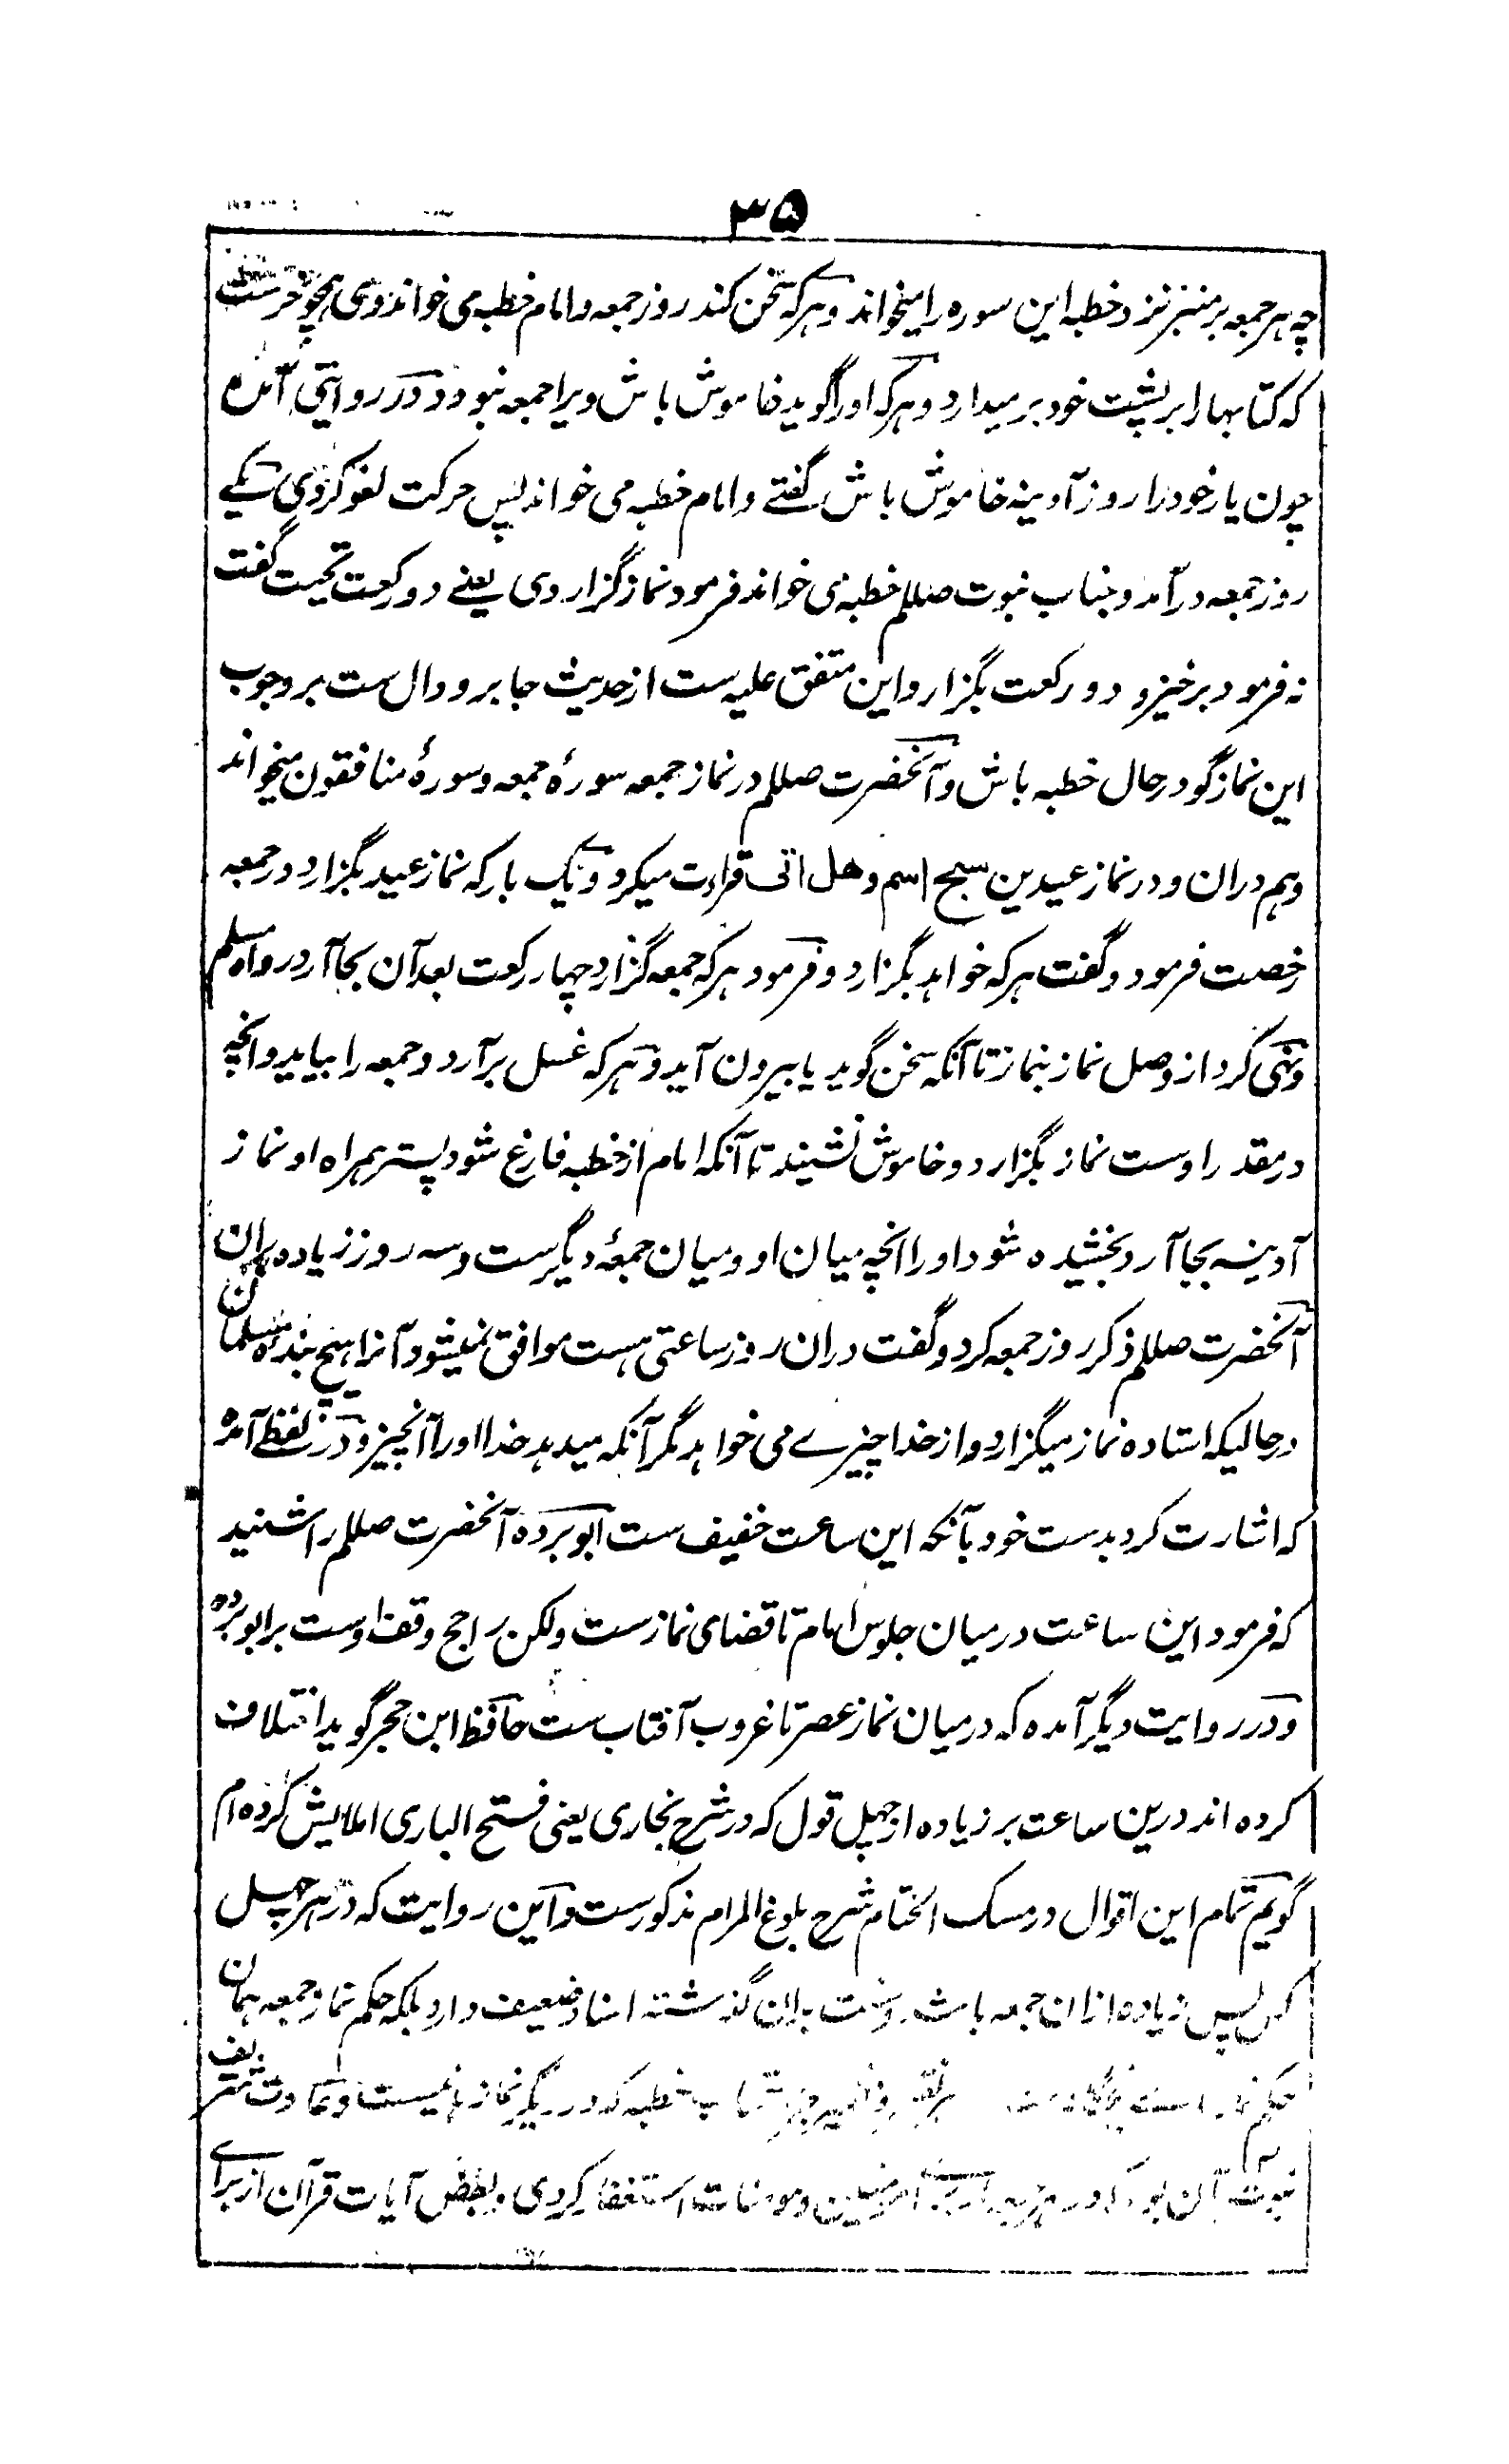 ۳۵
چه هر جمعه بر منبر نزد خطبه این سوره را میخواند و هرکه سخن کند روز جمعه و امام خطبه می خواند وی همچو خرست
که کتابها را بر پشت خود بر میدارد و هرکه او را گوید خاموش باش ویرا جمعه نبود و در روایتی آمده
چون یار خود را روز آدینه خاموش باش گفتے و امام خطبه می خواند پس حرکت لغو کردی یکے
روز جمعه در آمد و جناب نبوت صللم خطبه می خواند فرمود نماز گزاردی یعنے دو رکعت تحیت گفت
نه فرمود برخیز و دو رکعت بگزار و این متفق علیه ست از حدیث جابر و دال ست بر وجوب
این نماز گو در حال خطبه باش و آنحضرت صللم در نماز جمعه سورهٔ جمعه و سورهٔ منافقون میخواند
و هم دران و در نماز عیدین سبح اسم و هل اتی قراءت میکرد و یک بار که نماز عید بگزارد در جمعه
رخصت فرمود و گفت هرکه خواهد بگزارد و فرمود هرکه جمعه گزارد چهار رکعت بعد آن بجا آرد رواه مسلم
و نهی کرد از وصل نماز بنماز تا آنکه سخن گوید یا بیرون آید و هرکه غسل برآرد و جمعه را بیاید و انچه
در مقدر اوست نماز بگزارد و خاموش نشیند تا آنکه امام از خطبه فارغ شود پستر همراه او نماز
آدینه بجا آرد بخشیده شود او را انچه میان او و میان جمعهٔ دیگرست و سه روز زیاده بران
آنحضرت صللم ذکر روز جمعه کرد و گفت دران روز ساعتی هست موافق نمیشود آنرا هیچ بنده مسلمان
در حالیکه استاده نماز میگزارد و از خدا چیزے می خواهد مگر آنکه میدهد خدا او را آنچیز و در لفظے آمده
که اشارت کرد بدست خود بآنکه این ساعت خفیف ست ابو برده آنحضرت صللم را شنید
که فرمود این ساعت در میان جلوس امام تا قضای نمازست ولکن راجح وقف اوست بر ابو برده
و در روایت دیگر آمده که درمیان نماز عصر تا غروب آفتاب ست حافظ ابن حجر گوید اختلاف
کرده اند درین ساعت بر زیاده از چهل قول که در شرح بخاری یعنی فتح الباری املایش کرده ام
گویم تمام این اقوال در مسک الختام شرح بلوغ المرام مذکورست و این روایت که در هر چهل
کس پس زیاده ازان جمعه باشد و سنت بدان گذشته اسناد ضعیف دارد بلکه حکم نماز جمعه همان
حکم نماز خطبه که در دیگر نمازها نیست و عادت شریف
نبوت آن بود که در مؤمنین و مومنات استغفار کردی و بعض آیات قرآن از براے